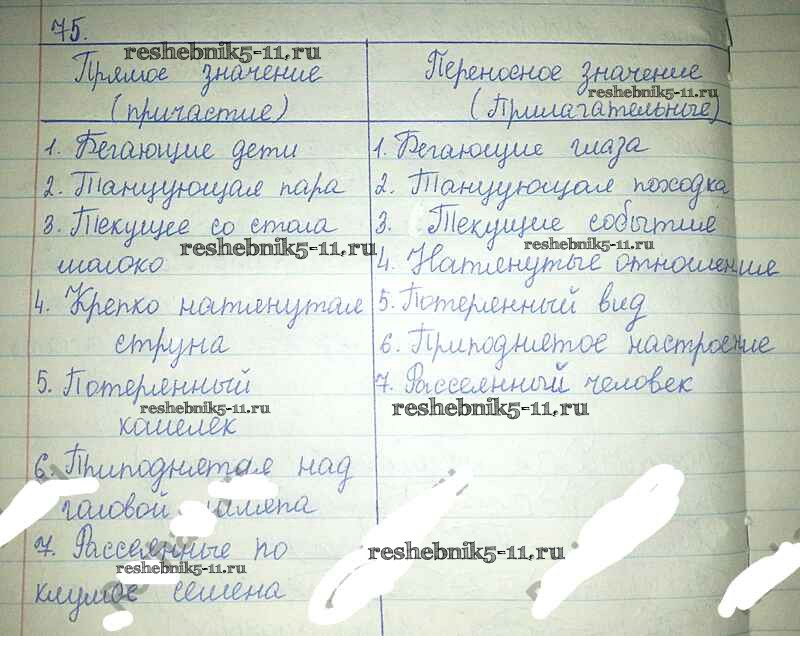 75.
reshebnik5-11.ru
Прямое значение
(причастие)
Переносное значение
reshebnik5-11.ru
(Прилагательные)
1. Бегающие дети
2. Танцующая пара
3. Текущее со стола
reshebnik5-11.ru
молоко
4. Крепко натянутая
струна
5. Потерянный
reshebnik5-11.ru
кошелек
6. Приподнятая над
головой шляпа
7. Рассеянные по
reshebnik5-11.ru
клумбе семена
1. Бегающие глаза
2. Танцующая походка
3. Текущие событие
reshebnik5-11.ru
4. Натянутые отношение
5. Потерянный вид
6. Приподнятое настроение
7. Рассеянный человек
reshebnik5-11.ru
reshebnik5-11.ru